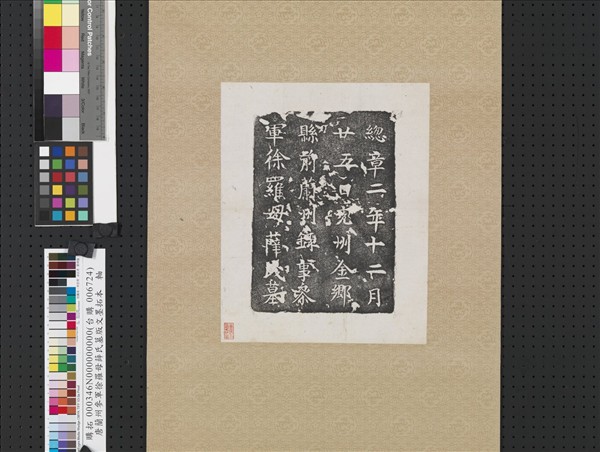 總章二年十二月
廿五日兖州金鄉
縣前蘭州錄事參
軍徐羅母薛氏墓
or Control Patches
購拓 000346N000000000(台購 006724)
唐蘭州參軍徐羅母薛氏墓版文墨拓本 軸